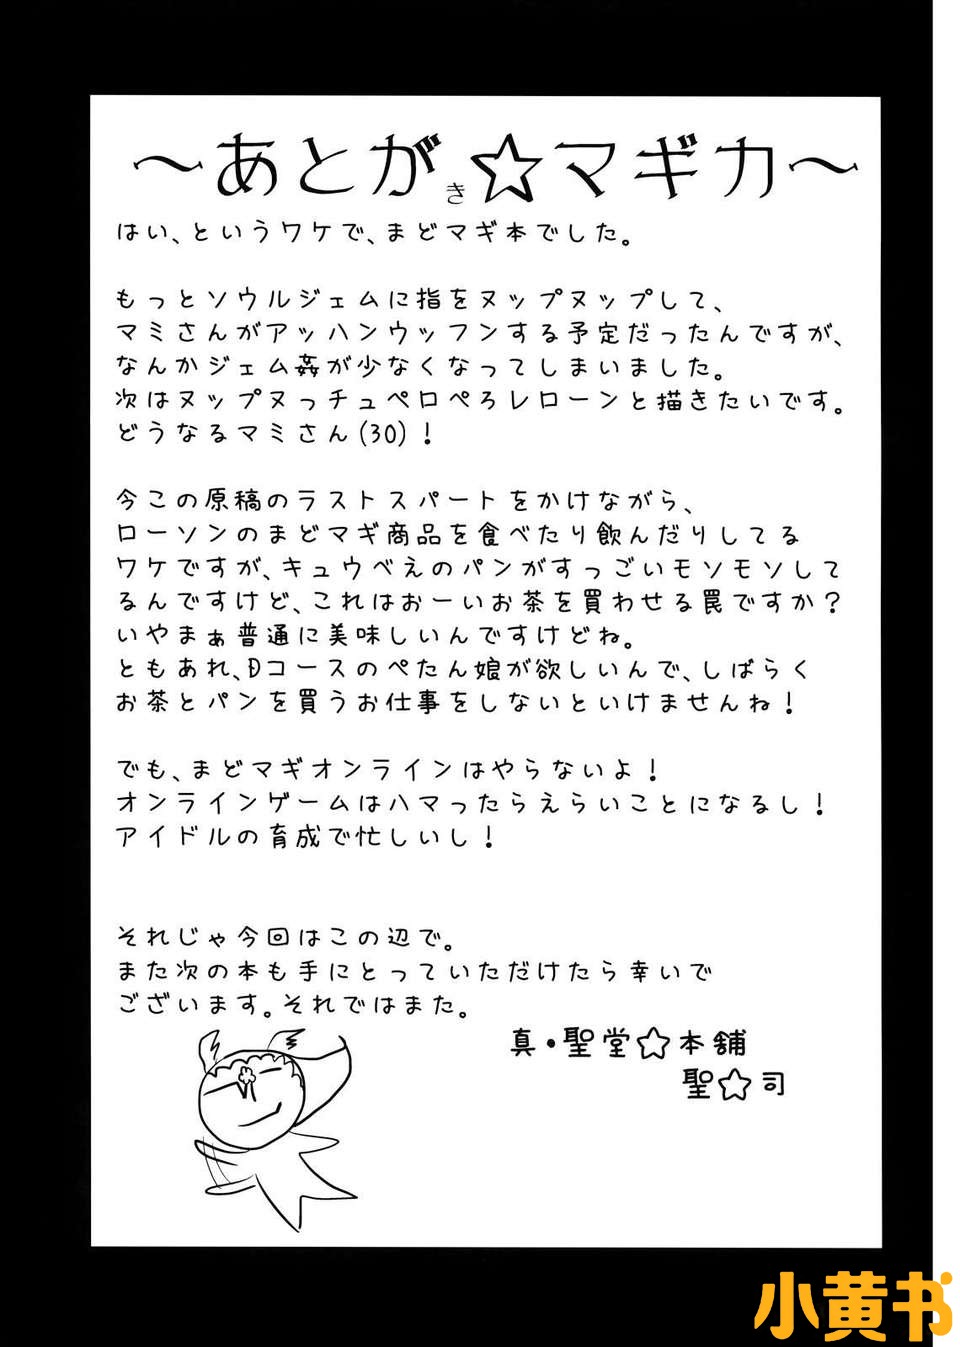 ～あとがき☆マギカ～
はい、というワケで、まどマギ本でした。
もっとソウルジェムに指をヌップヌップして、
マミさんがアッハンウッフンする予定だったんですが、
なんかジェム姦が少なくなってしまいました。
次はヌップヌっチュペロぺろレローンと描きたいです。
どうなるマミさん(30)！
今この原稿のラストスパートをかけながら、
ローソンのまどマギ商品を食べたり飲んだりしてる
ワケですが、キュウべえのパンがすっごいモソモソして
るんですけど、これはおーいお茶を買わせる罠ですか？
いやまぁ普通に美味しいんですけどね。
ともあれ、Dコースのぺたん娘が欲しいんで、しばらく
お茶とパンを買うお仕事をしないといけませんね！
でも、まどマギオンラインはやらないよ！
オンラインゲームはハマったらえらいことになるし！
アイドルの育成で忙しいし！
それじゃ今回はこの辺で。
また次の本も手にとっていただけたら幸いで
ございます。それではまた。
真・聖堂☆本舗
聖☆司
小黄书